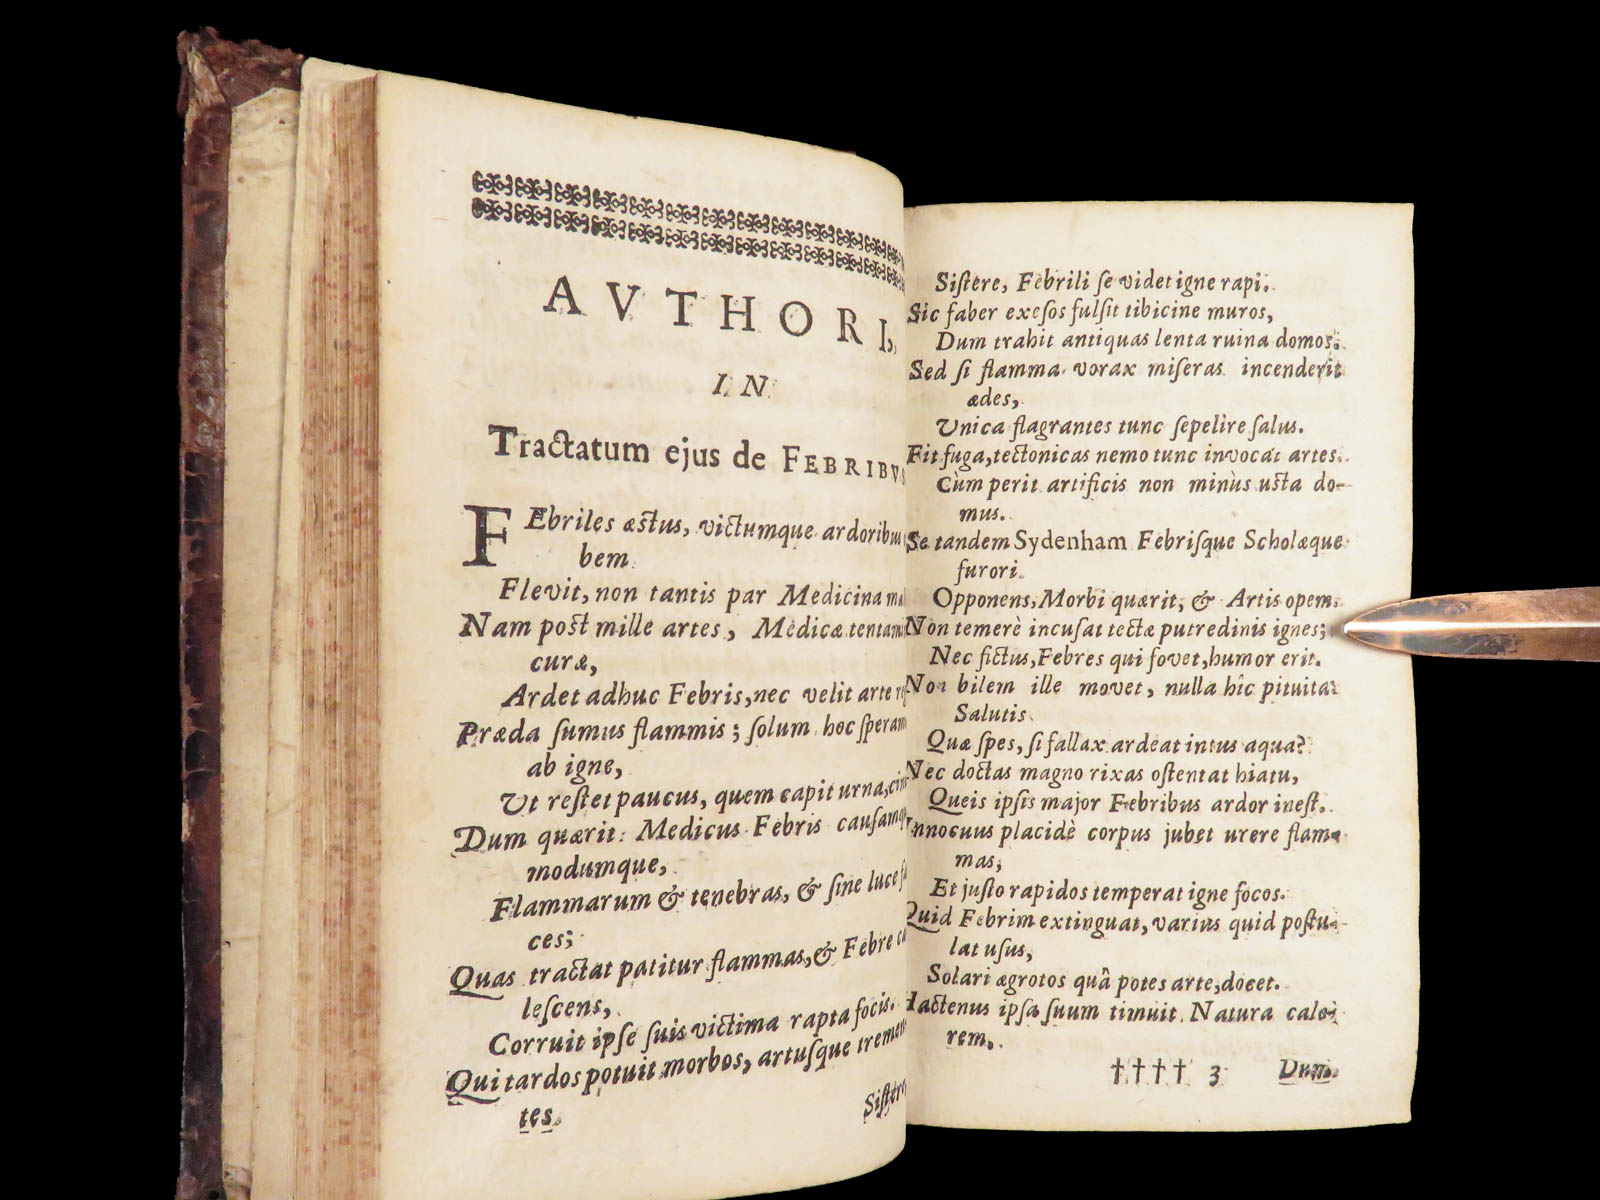 AVTHORI,
IN
Tractatum ejus de FEBRIBVS
FEbriles æstus, victumque ardoribus
bem
Flevit, non tantis par Medicina
Nam post mille artes, Medicæ
curæ,
Ardet adhuc Febris, nec velit arte
Præda sumus flammis; solum hoc
ab igne,
Ut restet paucus, quem capit urna,
Dum quærit Medicus Febris
modumque,
Flammarum & tenebras, & sine luce
ces;
Quas tractat patitur flammas, & Febre
lescens,
Corruit ipse suis victima rapta focis.
Qui tardos potuit morbos, artusque
tes.
Sistere
Sistere, Febrili se videt igne rapi.
Sic faber exesos fulsit tibicine muros,
Dum trahit antiquas lenta ruina domos.
Sed si flamma vorax miseras incenderit
ædes,
Unica flagrantes tunc sepelire salus.
Fit fuga, tectonicas nemo tunc invocat artes.
Cùm perit artificis non minùs usta do-
mus.
Se tandem Sydenham Febrisque Scholæque
furori.
Opponens, Morbi quærit, & Artis opem.
Non temerè incusat tectæ putredinis ignes;
Nec fictus, Febres qui fovet, humor erit.
Non bilem ille movet, nulla hîc pituita:
Salutis
Quæ spes, si fallax ardeat intus aqua?
Nec doctas magno rixas ostentat hiatu,
Queis ipsis major Febribus ardor inest.
Innocuus placidè corpus jubet urere flam-
mas;
Et justo rapidos temperat igne focos.
Quid Febrim extinguat, varius quid postu-
lat usus,
Solari ægrotos quâ potes arte, docet.
Hactenus ipsa suum timuit Natura calo-
rem.
†††† 3 Dum